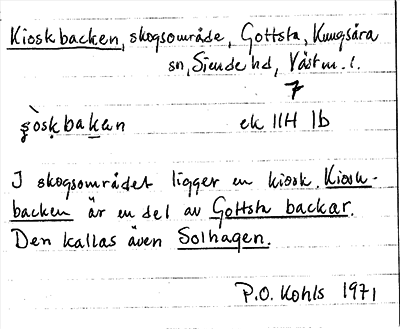 Kioskbacken, skogsområde, Gottsta, Kungsåra
sn, Siende hd, Västm. l.
7
ek 11H 1b
I skogsområdet ligger en kiosk. Kiosk-
backen är en del av Gottsta backar.
Den kallas även Solhagen.
P.O. Kohls 1971